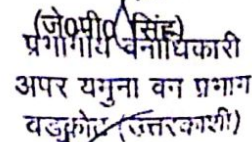 (जे०पी० सिंह)
प्रभागीय वनाधिकारी
अपर यमुना वन प्रभाग
बड़कोट (उत्तरकाशी)